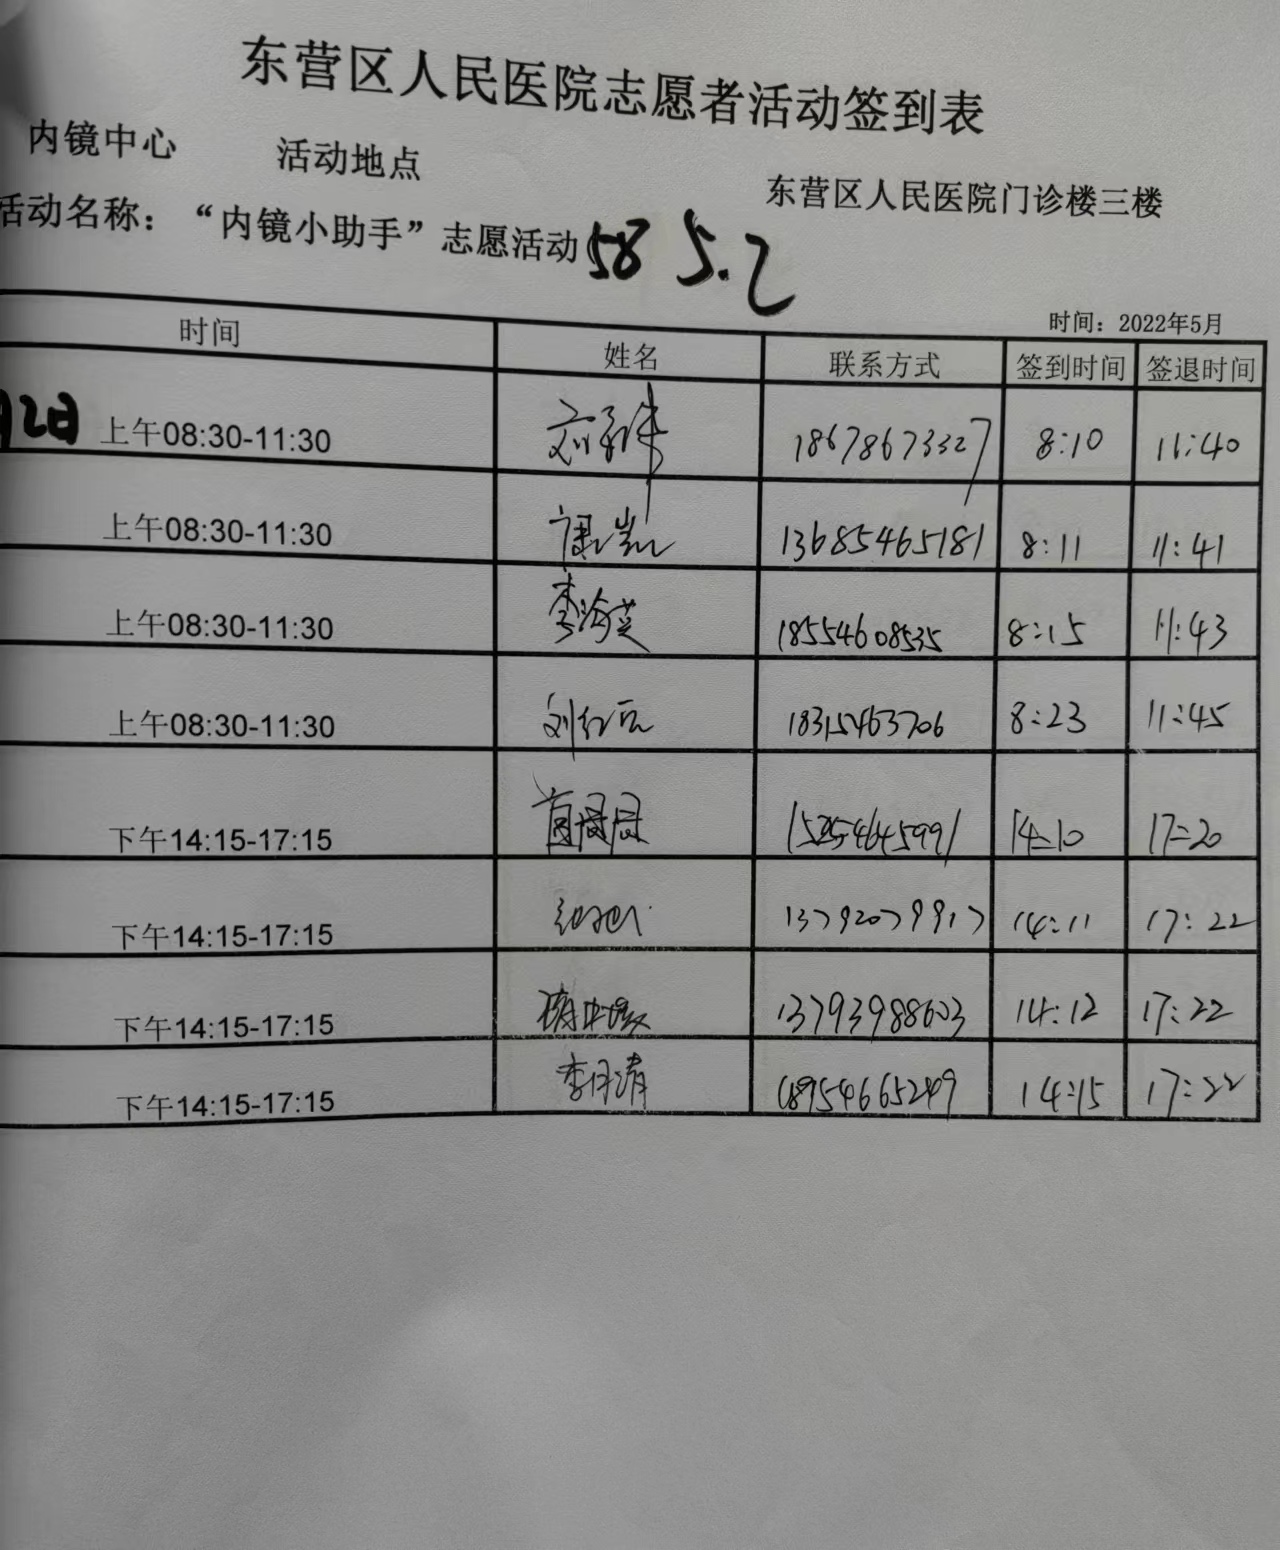 东营区人民医院志愿者活动签到表
内镜中心 活动地点 东营区人民医院门诊楼三楼
活动名称：“内镜小助手”志愿活动(58 5.2
时间：2022年5月
时间 姓名 联系方式 签到时间 签退时间
月2日 上午08:30-11:30 18678673327 8:10 11:40
上午08:30-11:30 13685465181 8:11 11:41
上午08:30-11:30 李海英 18554608535 8:15 11:43
上午08:30-11:30 刘红兵 18315463706 8:23 11:45
下午14:15-17:15 15254645991 14:10 17:20
下午14:15-17:15 13792079917 14:11 17:22
下午14:15-17:15 13793988603 14:12 17:22
下午14:15-17:15 李月清 18954665249 14:15 17:22